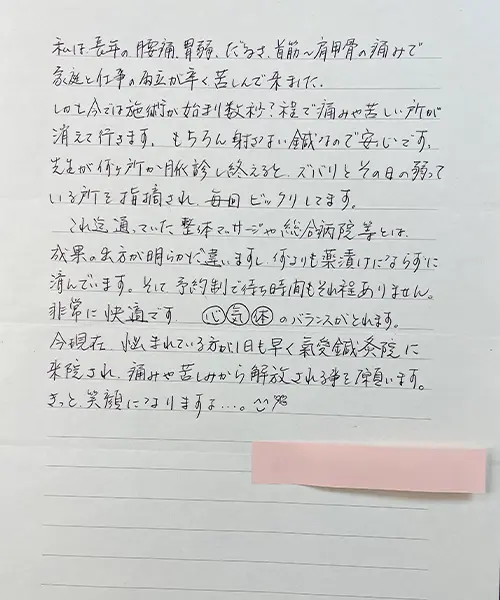 私は長年の腰痛、胃弱、だるさ、首筋〜肩甲骨の痛みで
家庭と仕事の両立が辛く苦しんで来ました。
しかも今では施術が始まり数秒?程で痛みや苦しい所が
消えて行きます。もちろん射さない鍼なので安心です。
先生が何ヶ所か脈診し終えると、ズバリとその日の弱って
いる所を指摘され、毎回ビックリしてます。
これ迄通っていた整体マッサージや総合病院等とは、
成果の出方が明らかに違いますし、何よりも薬漬けにならずに
済んでいます。そして予約制で待ち時間もそれ程ありません。
非常に快適です 心気体のバランスがとれます。
今現在、悩まれている方が1日も早く氣愛鍼灸院に
来院され、痛みや苦しみから解放される事を願います。
きっと、笑顔になりますよ…。